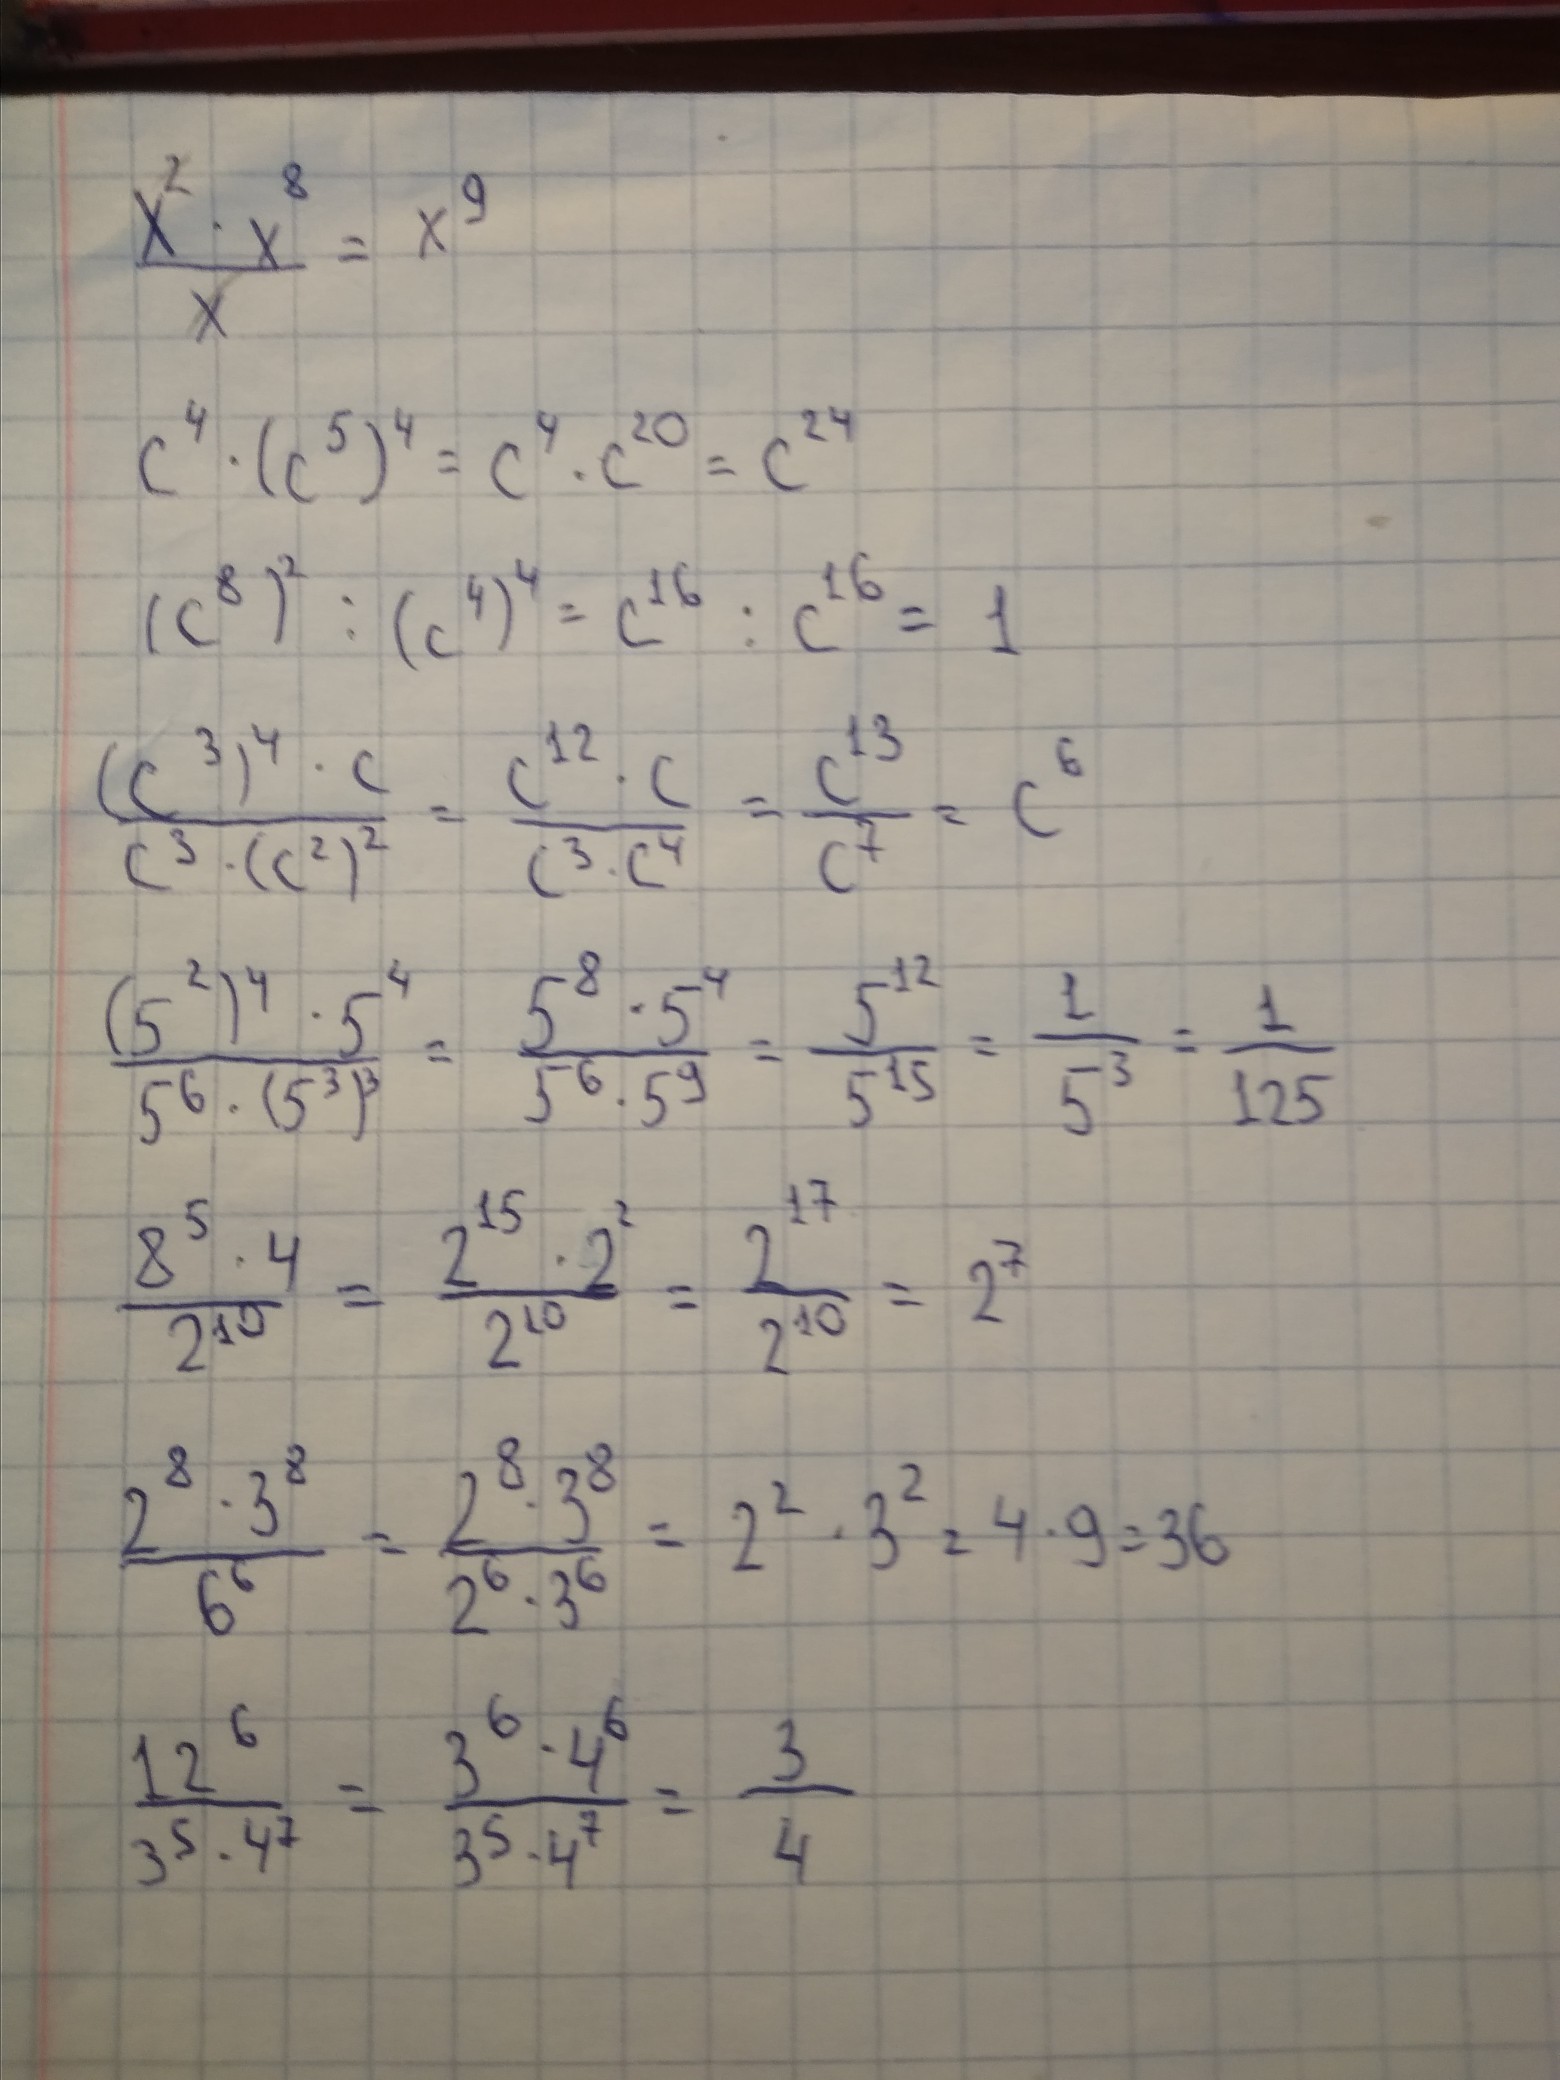 x² · x⁸ / x = x⁹
c⁴ · (c⁵)⁴ = c⁴ · c²⁰ = c²⁴
(c⁸)² : (c⁴)⁴ = c¹⁶ : c¹⁶ = 1
(c³)⁴ · c / c³ · (c²)² = c¹² · c / c³ · c⁴ = c¹³ / c⁷ = c⁶
(5²)⁴ · 5⁴ / 5⁶ · (5³)³ = 5⁸ · 5⁴ / 5⁶ · 5⁹ = 5¹² / 5¹⁵ = 1 / 5³ = 1 / 125
8⁵ · 4 / 2¹⁰ = 2¹⁵ · 2² / 2¹⁰ = 2¹⁷ / 2¹⁰ = 2⁷
2⁸ · 3⁸ / 6⁶ = 2⁸ · 3⁸ / 2⁶ · 3⁶ = 2² · 3² = 4 · 9 = 36
12⁶ / 3⁵ · 4⁷ = 3⁶ · 4⁶ / 3⁵ · 4⁷ = 3 / 4